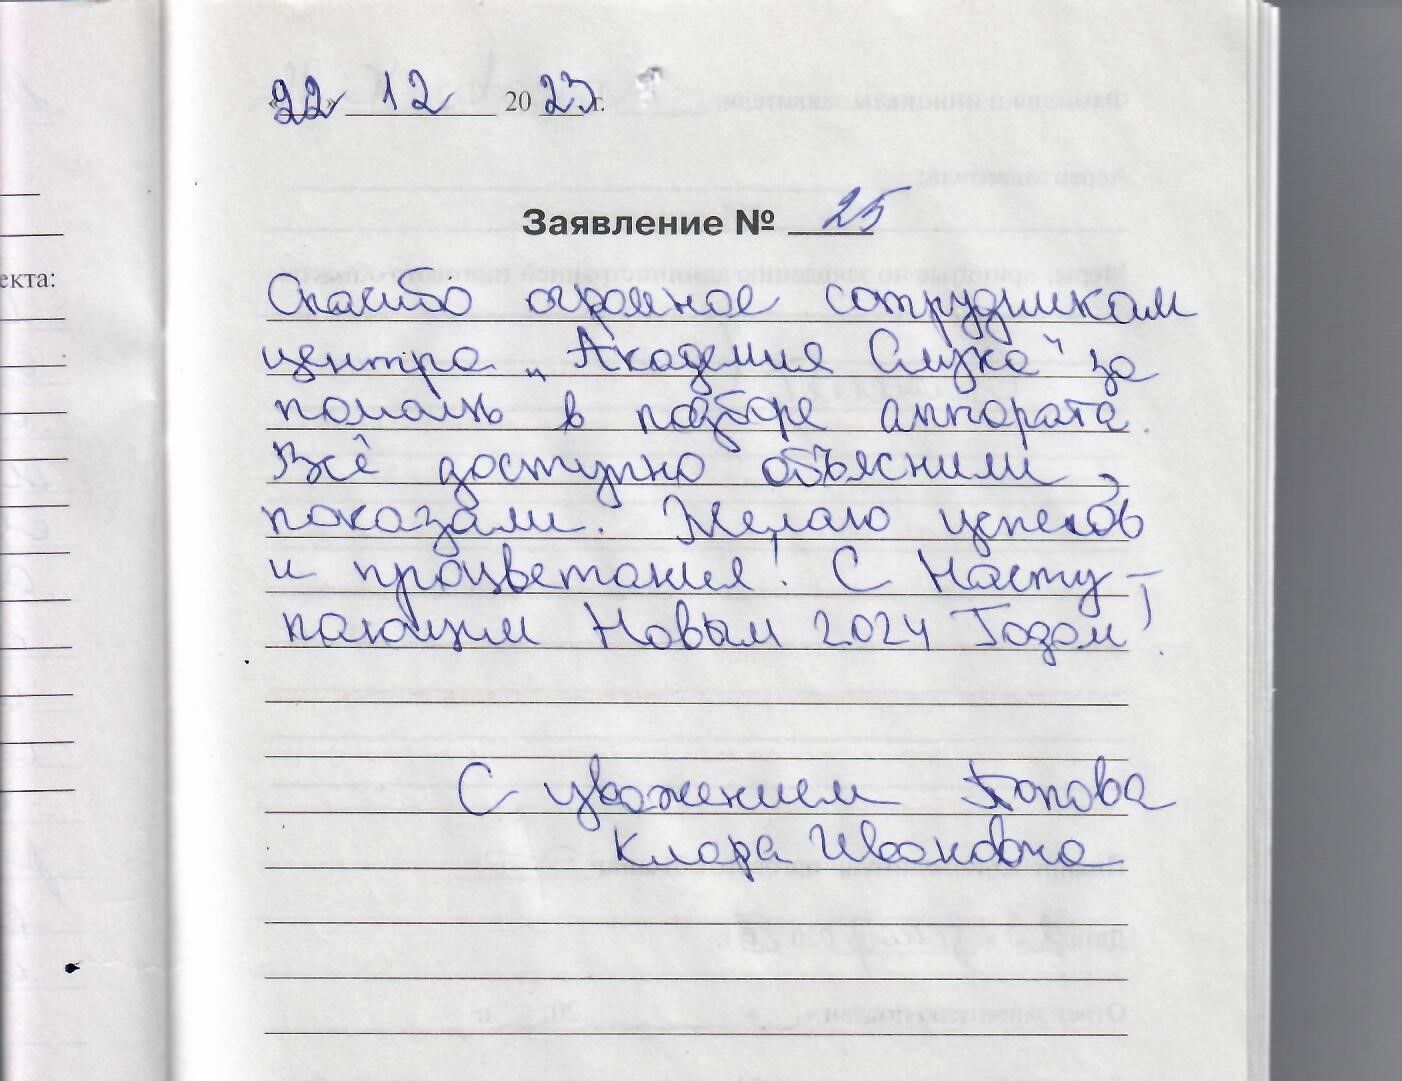 «22» 12 2023 г.
Заявление № 25
Спасибо огромное сотрудникам
центра „Академия Слуха“ за
помощь в подборе аппарата.
Всё доступно объяснили,
показали. Желаю успехов
и процветания! С Насту-
пающим Новым 2024 Годом!
С уважением Попова
Клара Ивановна
екта: